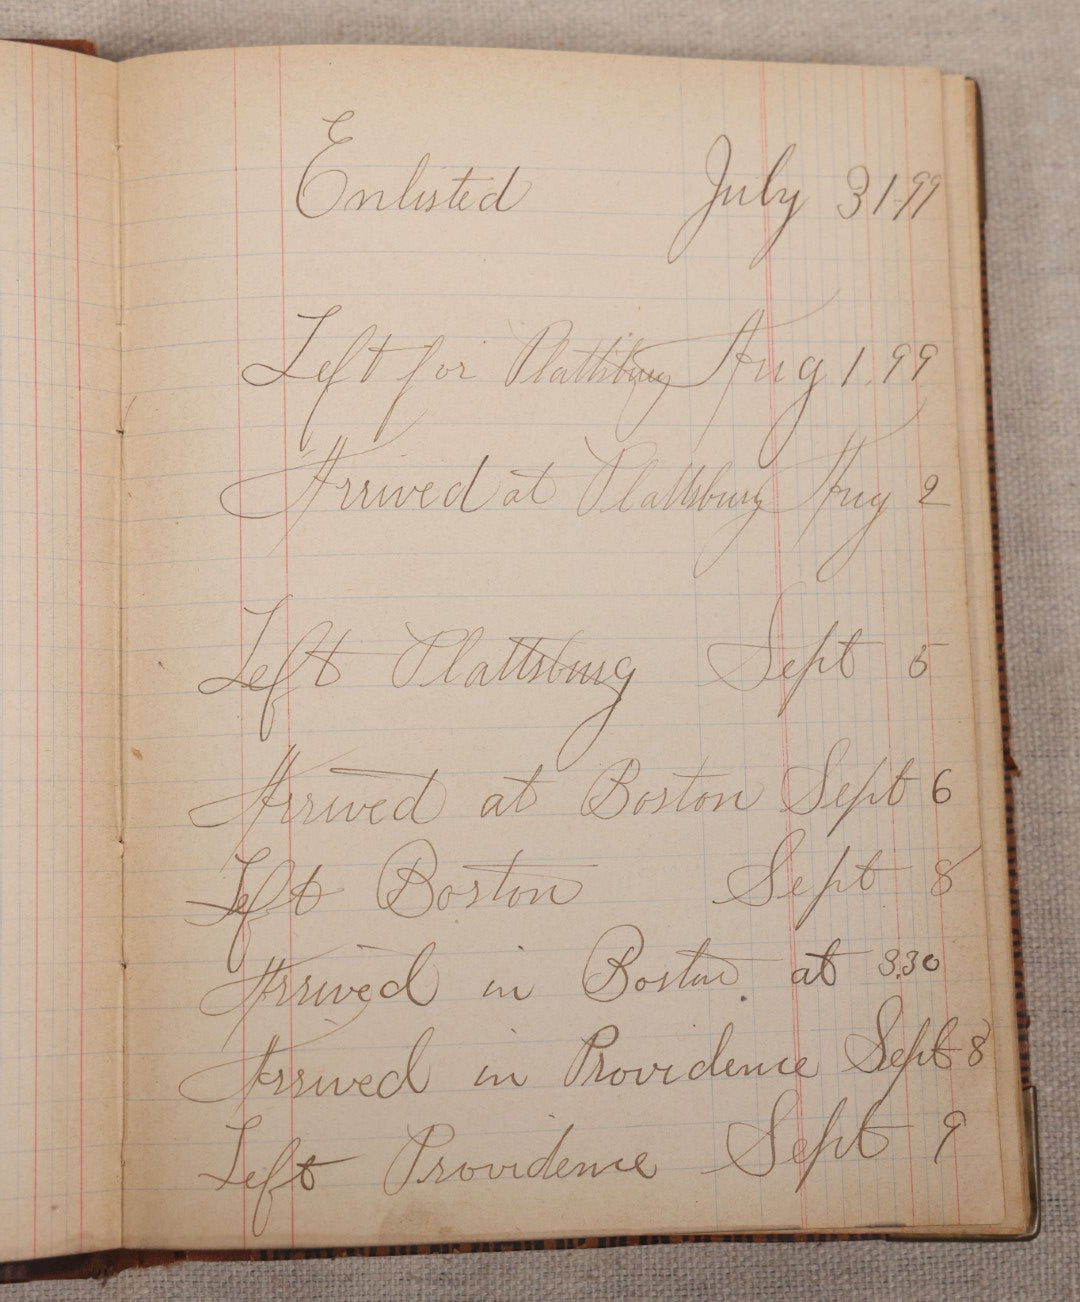 Enlisted July 31-99
Left for Plattsburg Aug 1.99
Arrived at Plattsburg Aug 2
Left Plattsburg Sept 5
Arrived at Boston Sept 6
Left Boston Sept 8
Arrived in Boston at 3.30
Arrived in Providence Sept 8
Left Providence Sept 9